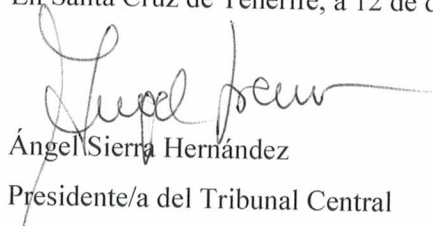 En Santa Cruz de Tenerife, a 12 de
Angel Sierra
Ángel Sierra Hernández
Presidente/a del Tribunal Central